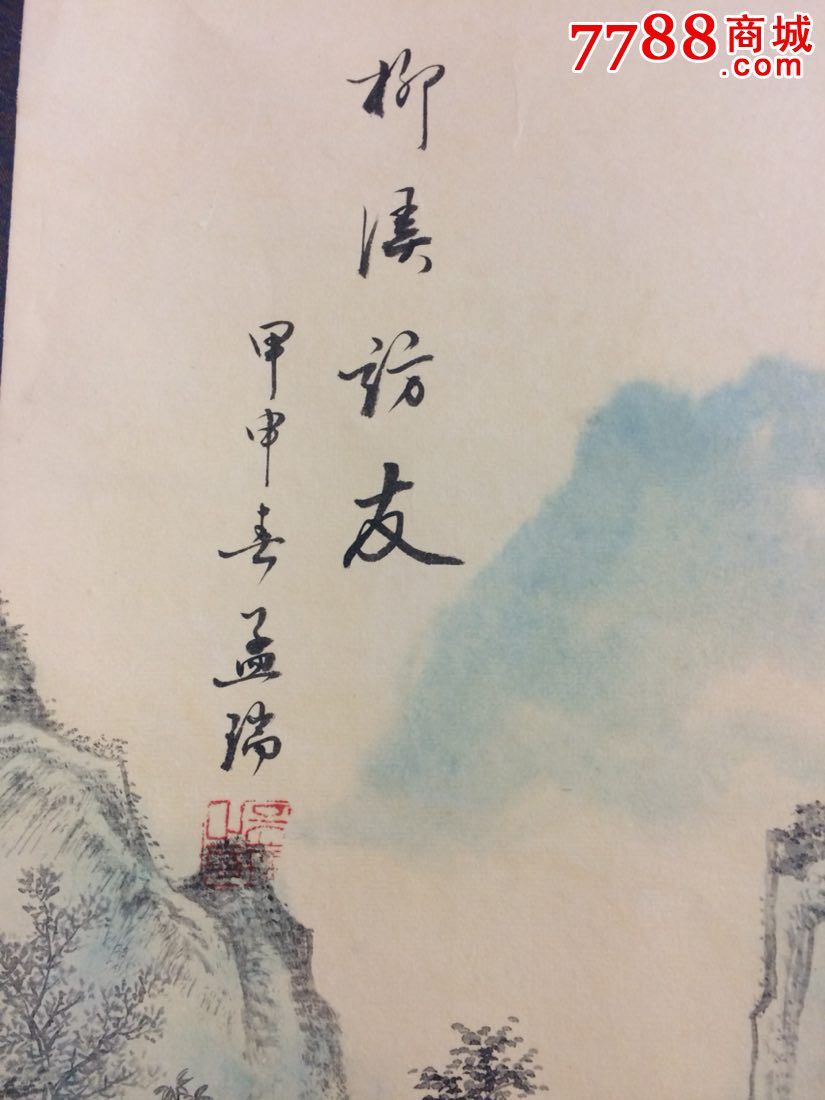 7788商城
.com
柳溪訪友
甲申春孟瑞